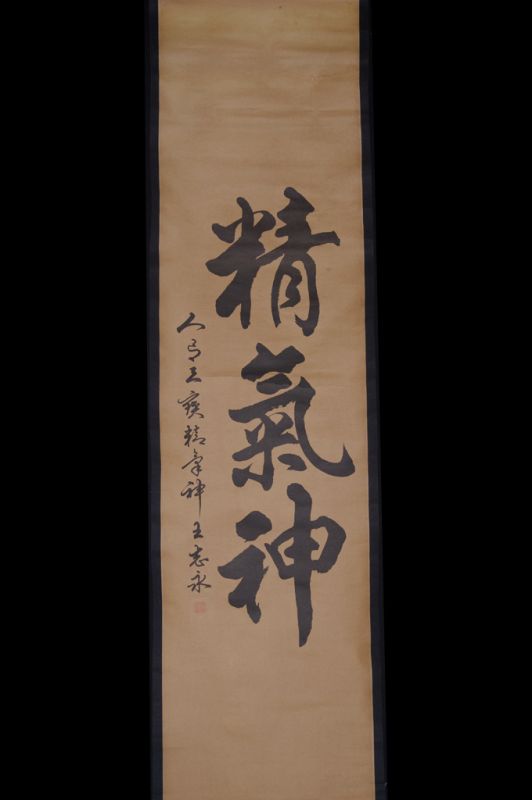 精氣神
人有三寳精氣神王志永